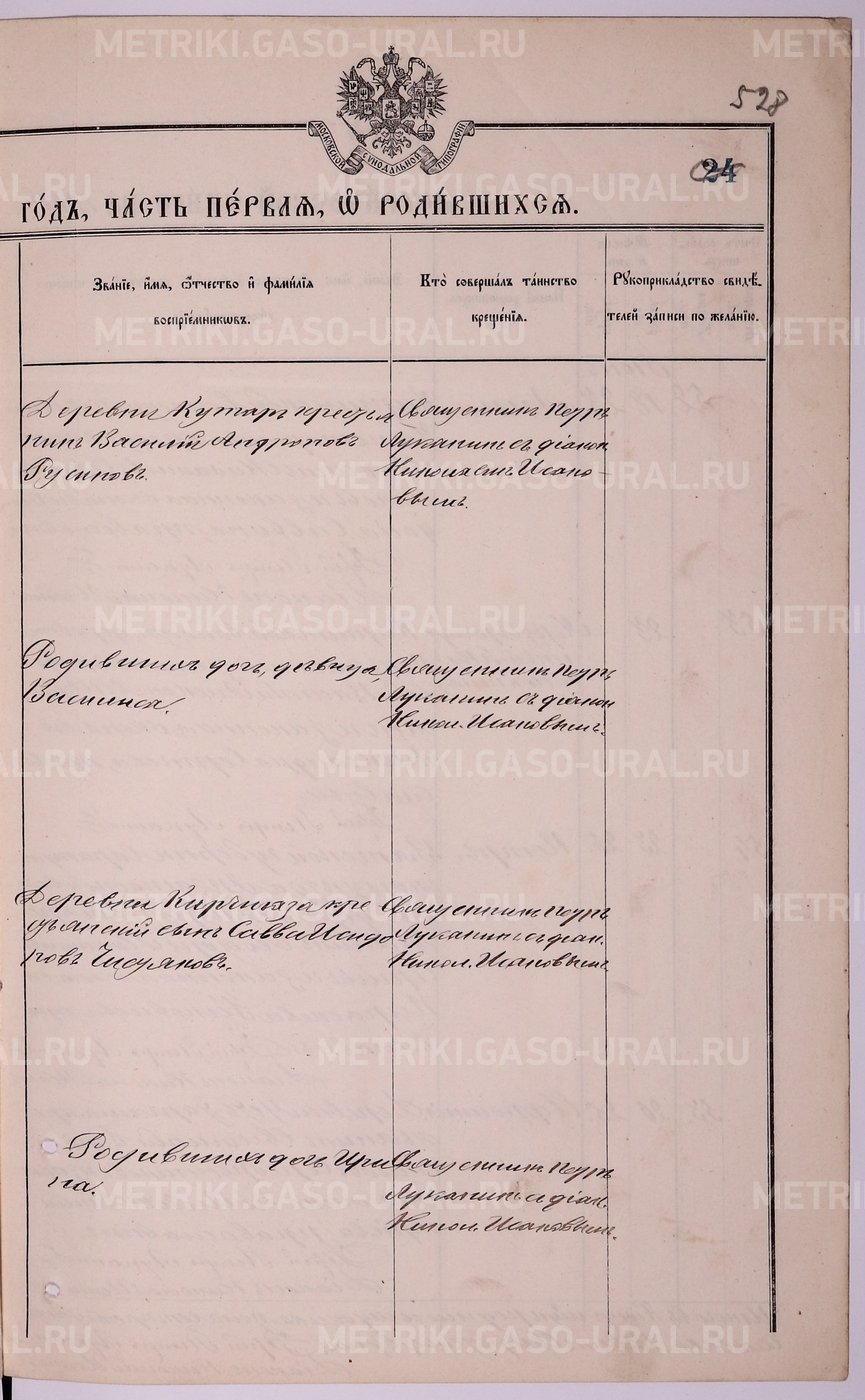 528
МОСКОВСКОЙ СѴНОДАЛЬНОЙ ТИПОГРАФІИ
24
го́дъ, ча́сть пе́рваѧ, ѡ҆ роди́вшихсѧ.
Зва́нїе, и҆́мѧ, ѻ҆́тчество и҆ фами́лїѧ
воспрїе́мникѡвъ.
Кто̀ соверша́лъ та́инство
креще́нїѧ.
Рꙋкоприкла́дство свидѣ́-
телей за́писи по жела́нїю.
Деревни Кутаръ крестья
нинъ Василій Андроновъ
Русиновъ.
Священникъ Петръ
Луканинъ съ діакон.
Николаемъ Исако-
вымъ.
Родившихъ дочь, дѣвица,
Василиса.
Священникъ Петръ
Луканинъ съ діакон
Никол. Исаковымъ.
Деревни Киргишаза кре
стьянскій сынъ Савва Исидо
ровъ Чистяковъ.
Священникъ Петръ
Луканинъ съ діак.
Никол. Исаковымъ.
Родившихъ дочь Ири
на.
Священникъ Петръ
Луканинъ съ діак.
Никол. Исаковымъ.
METRIKI.GASO-URAL.RU